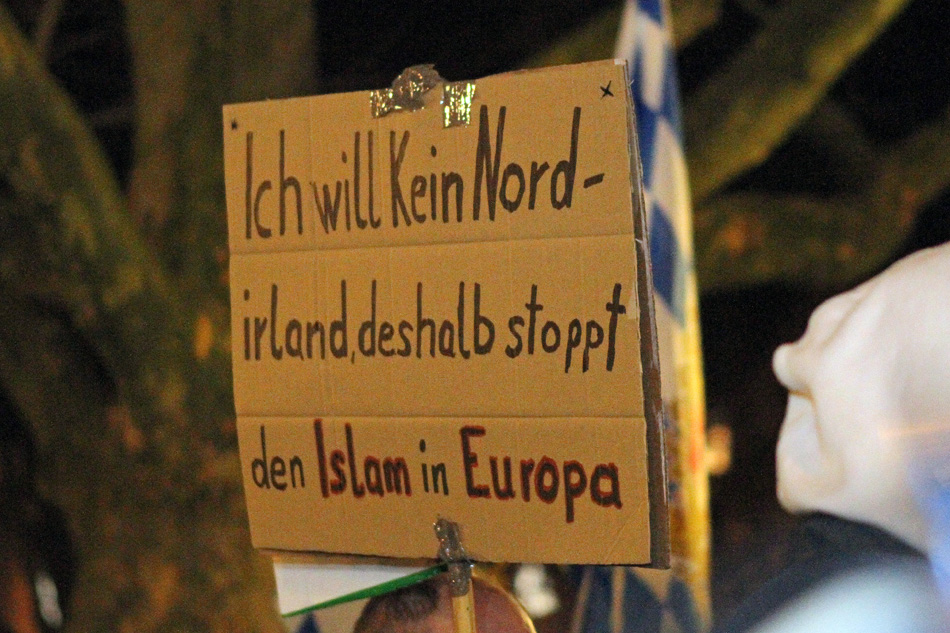 Ich will Kein Nord-
irland, deshalb stoppt
den Islam in Europa